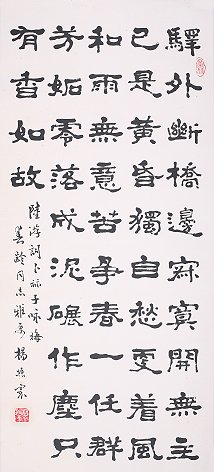 驛外斷橋邊寂寞開無主
已是黃昏獨自愁更着風
和雨無意苦爭春一任群
芳妬零落成泥碾作塵只
有香如故
陸游詞卜祘子咏梅
齡同志雅屬 楊